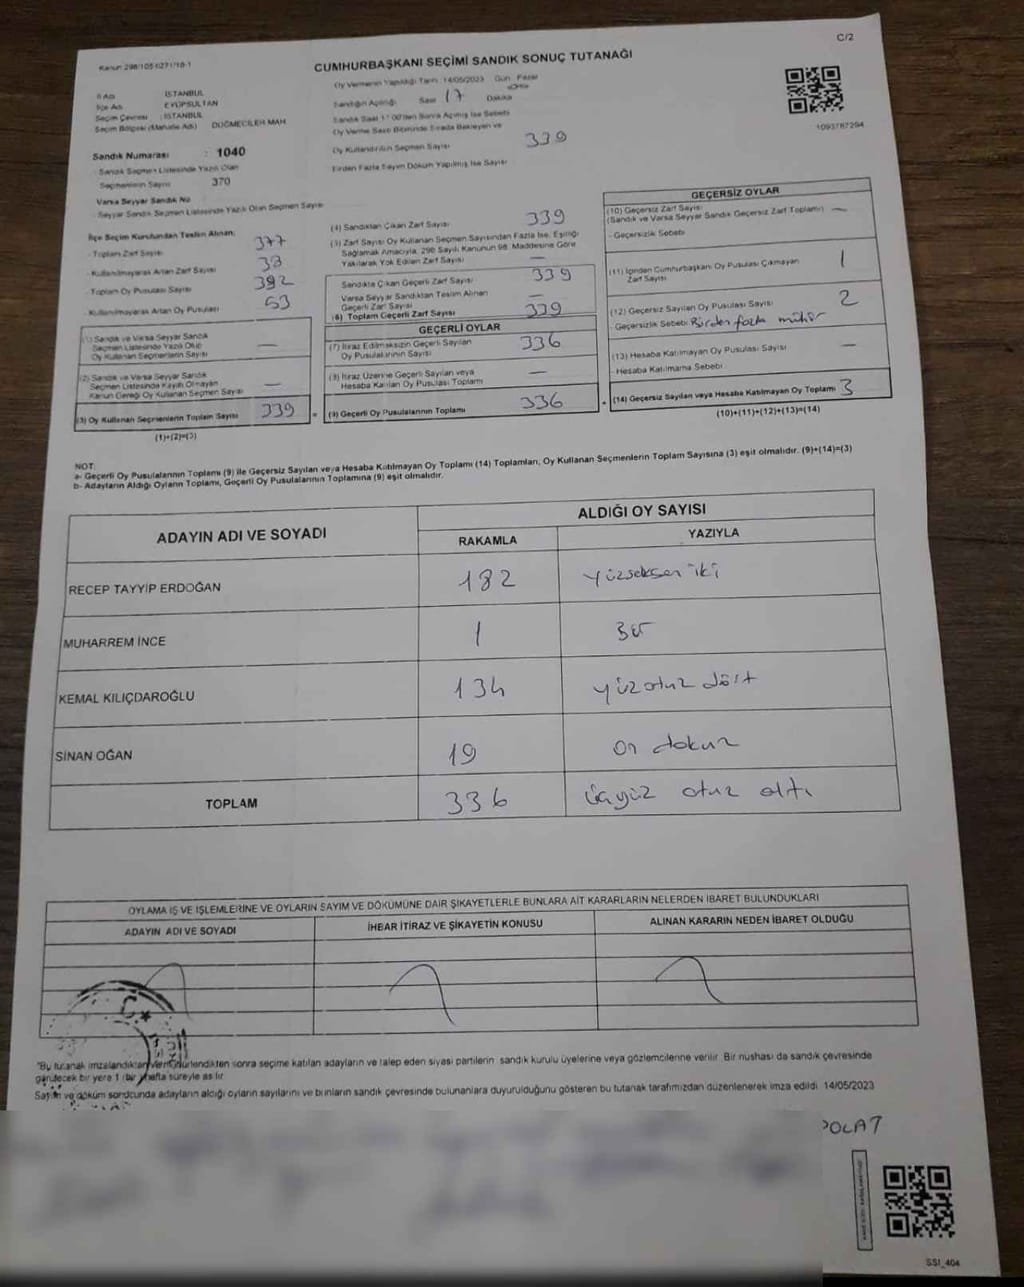 C/2
Kanun 298/105-İ271/16-1
CUMHURBAŞKANI SEÇİMİ SANDIK SONUÇ TUTANAĞI
İl Adı : İSTANBUL
İlçe Adı : EYÜPSULTAN
Seçim Çevresi : İSTANBUL
Seçim Bölgesi (Mahalle Adı) : DÜĞMECİLER MAH
Oy Vermenin Yapıldığı Tarih : 14/05/2023 Gün : Pazar
Sandığın Açılışı Saat 17 Dakika
Sandık Saat 17:00'den Sonra Açılmış İse Sebebi
Oy Verme Saati Bitiminde Sırada Bekleyen ve
Oy Kullandırılan Seçmen Sayısı 339
Birden Fazla Sayım Döküm Yapılmış İse Sayısı
1093787294
Sandık Numarası : 1040
- Sandık Seçmen Listesinde Yazılı Olan
Seçmenlerin Sayısı 370
Varsa Seyyar Sandık No
- Seyyar Sandık Seçmen Listesinde Yazılı Olan Seçmen Sayısı
İlçe Seçim Kurulundan Teslim Alınan;
- Toplam Zarf Sayısı 377
- Kullanılmayarak Artan Zarf Sayısı 38
- Toplam Oy Pusulası Sayısı 392
- Kullanılmayarak Artan Oy Pusulası 53
(1) Sandık ve Varsa Seyyar Sandık
Seçmen Listesinde Yazılı Olup
Oy Kullanan Seçmenlerin Sayısı —
(2) Sandık ve Varsa Seyyar Sandık
Seçmen Listesinde Kaydı Olmayan
Kanun Gereği Oy Kullanan Seçmen Sayısı —
(3) Oy Kullanan Seçmenlerin Toplam Sayısı 339 =
(1)+(2)=(3)
(4) Sandıktan Çıkan Zarf Sayısı 339
(5) Zarf Sayısı Oy Kullanan Seçmen Sayısından Fazla İse, Eşitliği
Sağlamak Amacıyla, 298 Sayılı Kanunun 98. Maddesine Göre
Yakılarak Yok Edilen Zarf Sayısı —
Sandıkta Çıkan Geçerli Zarf Sayısı 339
Varsa Seyyar Sandıktan Teslim Alınan
Geçerli Zarf Sayısı —
(6) Toplam Geçerli Zarf Sayısı 339
GEÇERLİ OYLAR
(7) İtiraz Edilmeksizin Geçerli Sayılan
Oy Pusulalarının Sayısı 336
(8) İtiraz Üzerine Geçerli Sayılan veya
Hesaba Katılan Oy Pusulası Toplamı —
(9) Geçerli Oy Pusulalarının Toplamı 336 +
GEÇERSİZ OYLAR
(10) Geçersiz Zarf Sayısı
(Sandık ve Varsa Seyyar Sandık Geçersiz Zarf Toplamı) —
- Geçersizlik Sebebi
(11) İçinden Cumhurbaşkanı Oy Pusulası Çıkmayan
Zarf Sayısı 1
(12) Geçersiz Sayılan Oy Pusulası Sayısı 2
- Geçersizlik Sebebi Birden fazla mühür
(13) Hesaba Katılmayan Oy Pusulası Sayısı —
- Hesaba Katılmama Sebebi
(14) Geçersiz Sayılan veya Hesaba Katılmayan Oy Toplamı 3
(10)+(11)+(12)+(13)=(14)
NOT:
a- Geçerli Oy Pusulalarının Toplamı (9) ile Geçersiz Sayılan veya Hesaba Katılmayan Oy Toplamı (14) Toplamları, Oy Kullanan Seçmenlerin Toplam Sayısına (3) eşit olmalıdır. (9)+(14)=(3)
b- Adayların Aldığı Oyların Toplamı, Geçerli Oy Pusulalarının Toplamına (9) eşit olmalıdır.
ADAYIN ADI VE SOYADI ALDIĞI OY SAYISI
RAKAMLA YAZIYLA
RECEP TAYYİP ERDOĞAN 182 yüzseksen iki
MUHARREM İNCE 1 Bir
KEMAL KILIÇDAROĞLU 134 yüzotuz dört
SİNAN OĞAN 19 on dokuz
TOPLAM 336 üçyüz otuz altı
OYLAMA İŞ VE İŞLEMLERİNE VE OYLARIN SAYIM VE DÖKÜMÜNE DAİR ŞİKAYETLERLE BUNLARA AİT KARARLARIN NELERDEN İBARET BULUNDUKLARI
ADAYIN ADI VE SOYADI İHBAR İTİRAZ VE ŞİKAYETİN KONUSU ALINAN KARARIN NEDEN İBARET OLDUĞU
*Bu tutanak imzalandıktan ve mühürlendikten sonra seçime katılan adayların ve talep eden siyasi partilerin sandık kurulu üyelerine veya gözlemcilerine verilir. Bir nüshası da sandık çevresinde
görülecek bir yere 1 (bir) hafta süreyle asılır.
Sayım ve döküm sonucunda adayların aldığı oyların sayılarını ve bunların sandık çevresinde bulunanlara duyurulduğunu gösteren bu tutanak tarafımızdan düzenlenerek imza edildi. 14/05/2023
POLAT
SSI_404